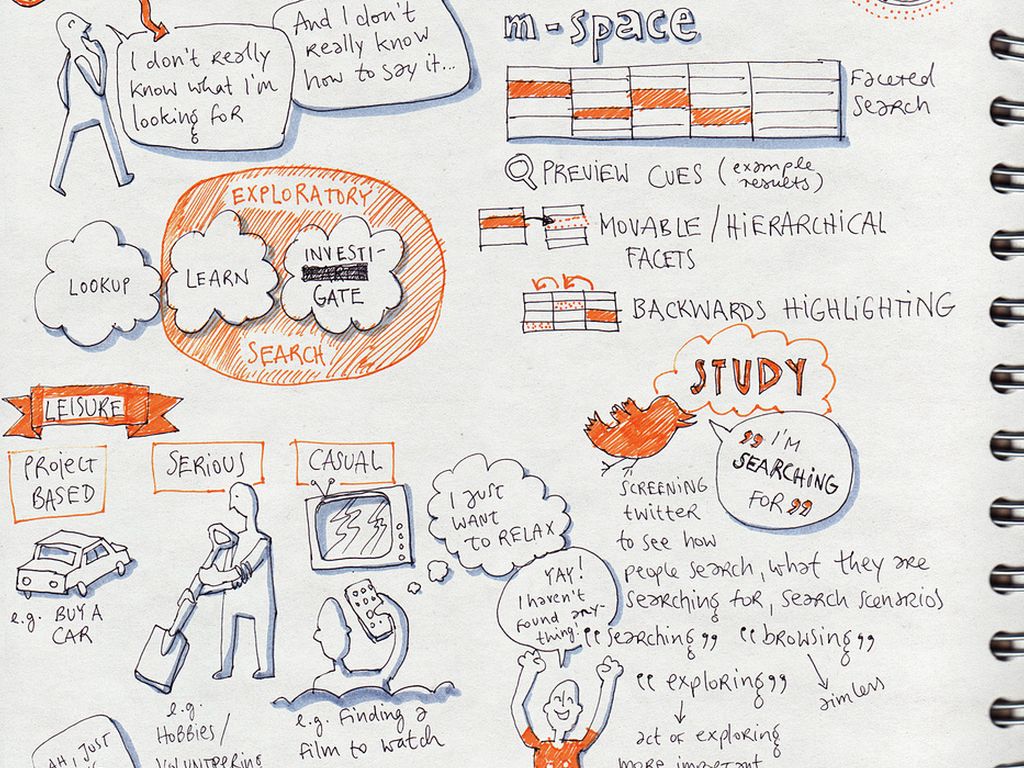 I don't really
know what I'm
looking for
And I don't
really know
how to say it...
EXPLORATORY
LOOKUP
LEARN
INVESTI-
GATE
SEARCH
LEISURE
PROJECT
BASED
e.g. BUY A
CAR
SERIOUS
e.g.
HOBBIES/
VOLUNTEERING
CASUAL
I JUST
WANT
TO RELAX
e.g. finding a
film to watch
AH, I JUST
YAY!
I haven't
found any-
thing!
m-space
FACETED
SEARCH
PREVIEW CUES (example
results)
MOVABLE / HIERARCHICAL
FACETS
BACKWARDS HIGHLIGHTING
STUDY
"I'M
SEARCHING
FOR"
SCREENING
twitter
to see how
people search, what they are
searching for, search scenarios
"searching" "browsing"
"exploring"
aimless
act of exploring
more important